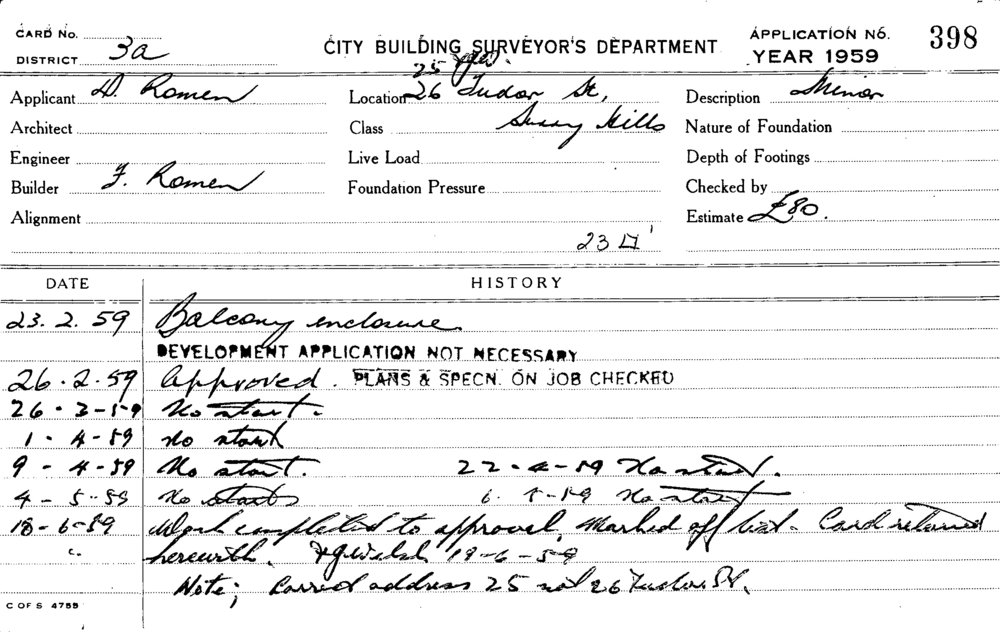 CARD No.
DISTRICT 3a
CITY BUILDING SURVEYOR'S DEPARTMENT
APPLICATION No. 398
YEAR 1959
25
Applicant D. Romen
Location 26 Tudor St,
Description Minor
Architect
Class Surry Hills
Nature of Foundation
Engineer
Live Load
Depth of Footings
Builder F. Romen
Foundation Pressure
Checked by
Alignment
Estimate £80.
23 □'
DATE HISTORY
23. 2. 59 Balcony enclosure
DEVELOPMENT APPLICATION NOT NECESSARY
26. 2. 59 Approved. PLANS & SPECN. ON JOB CHECKED
26 - 3 - 59 No start.
1 - 4 - 59 no start
9 - 4 - 59 No start. 22 - 4 - 59 No start.
4 - 5 - 59 No start 6 5 - 59 No start
18 - 6 - 59 Work completed to approval, Marked off list. Card returned
herewith. 19 - 6 - 59
Note; Correct address 25 not 26 Tudor St.
C OF S 4755